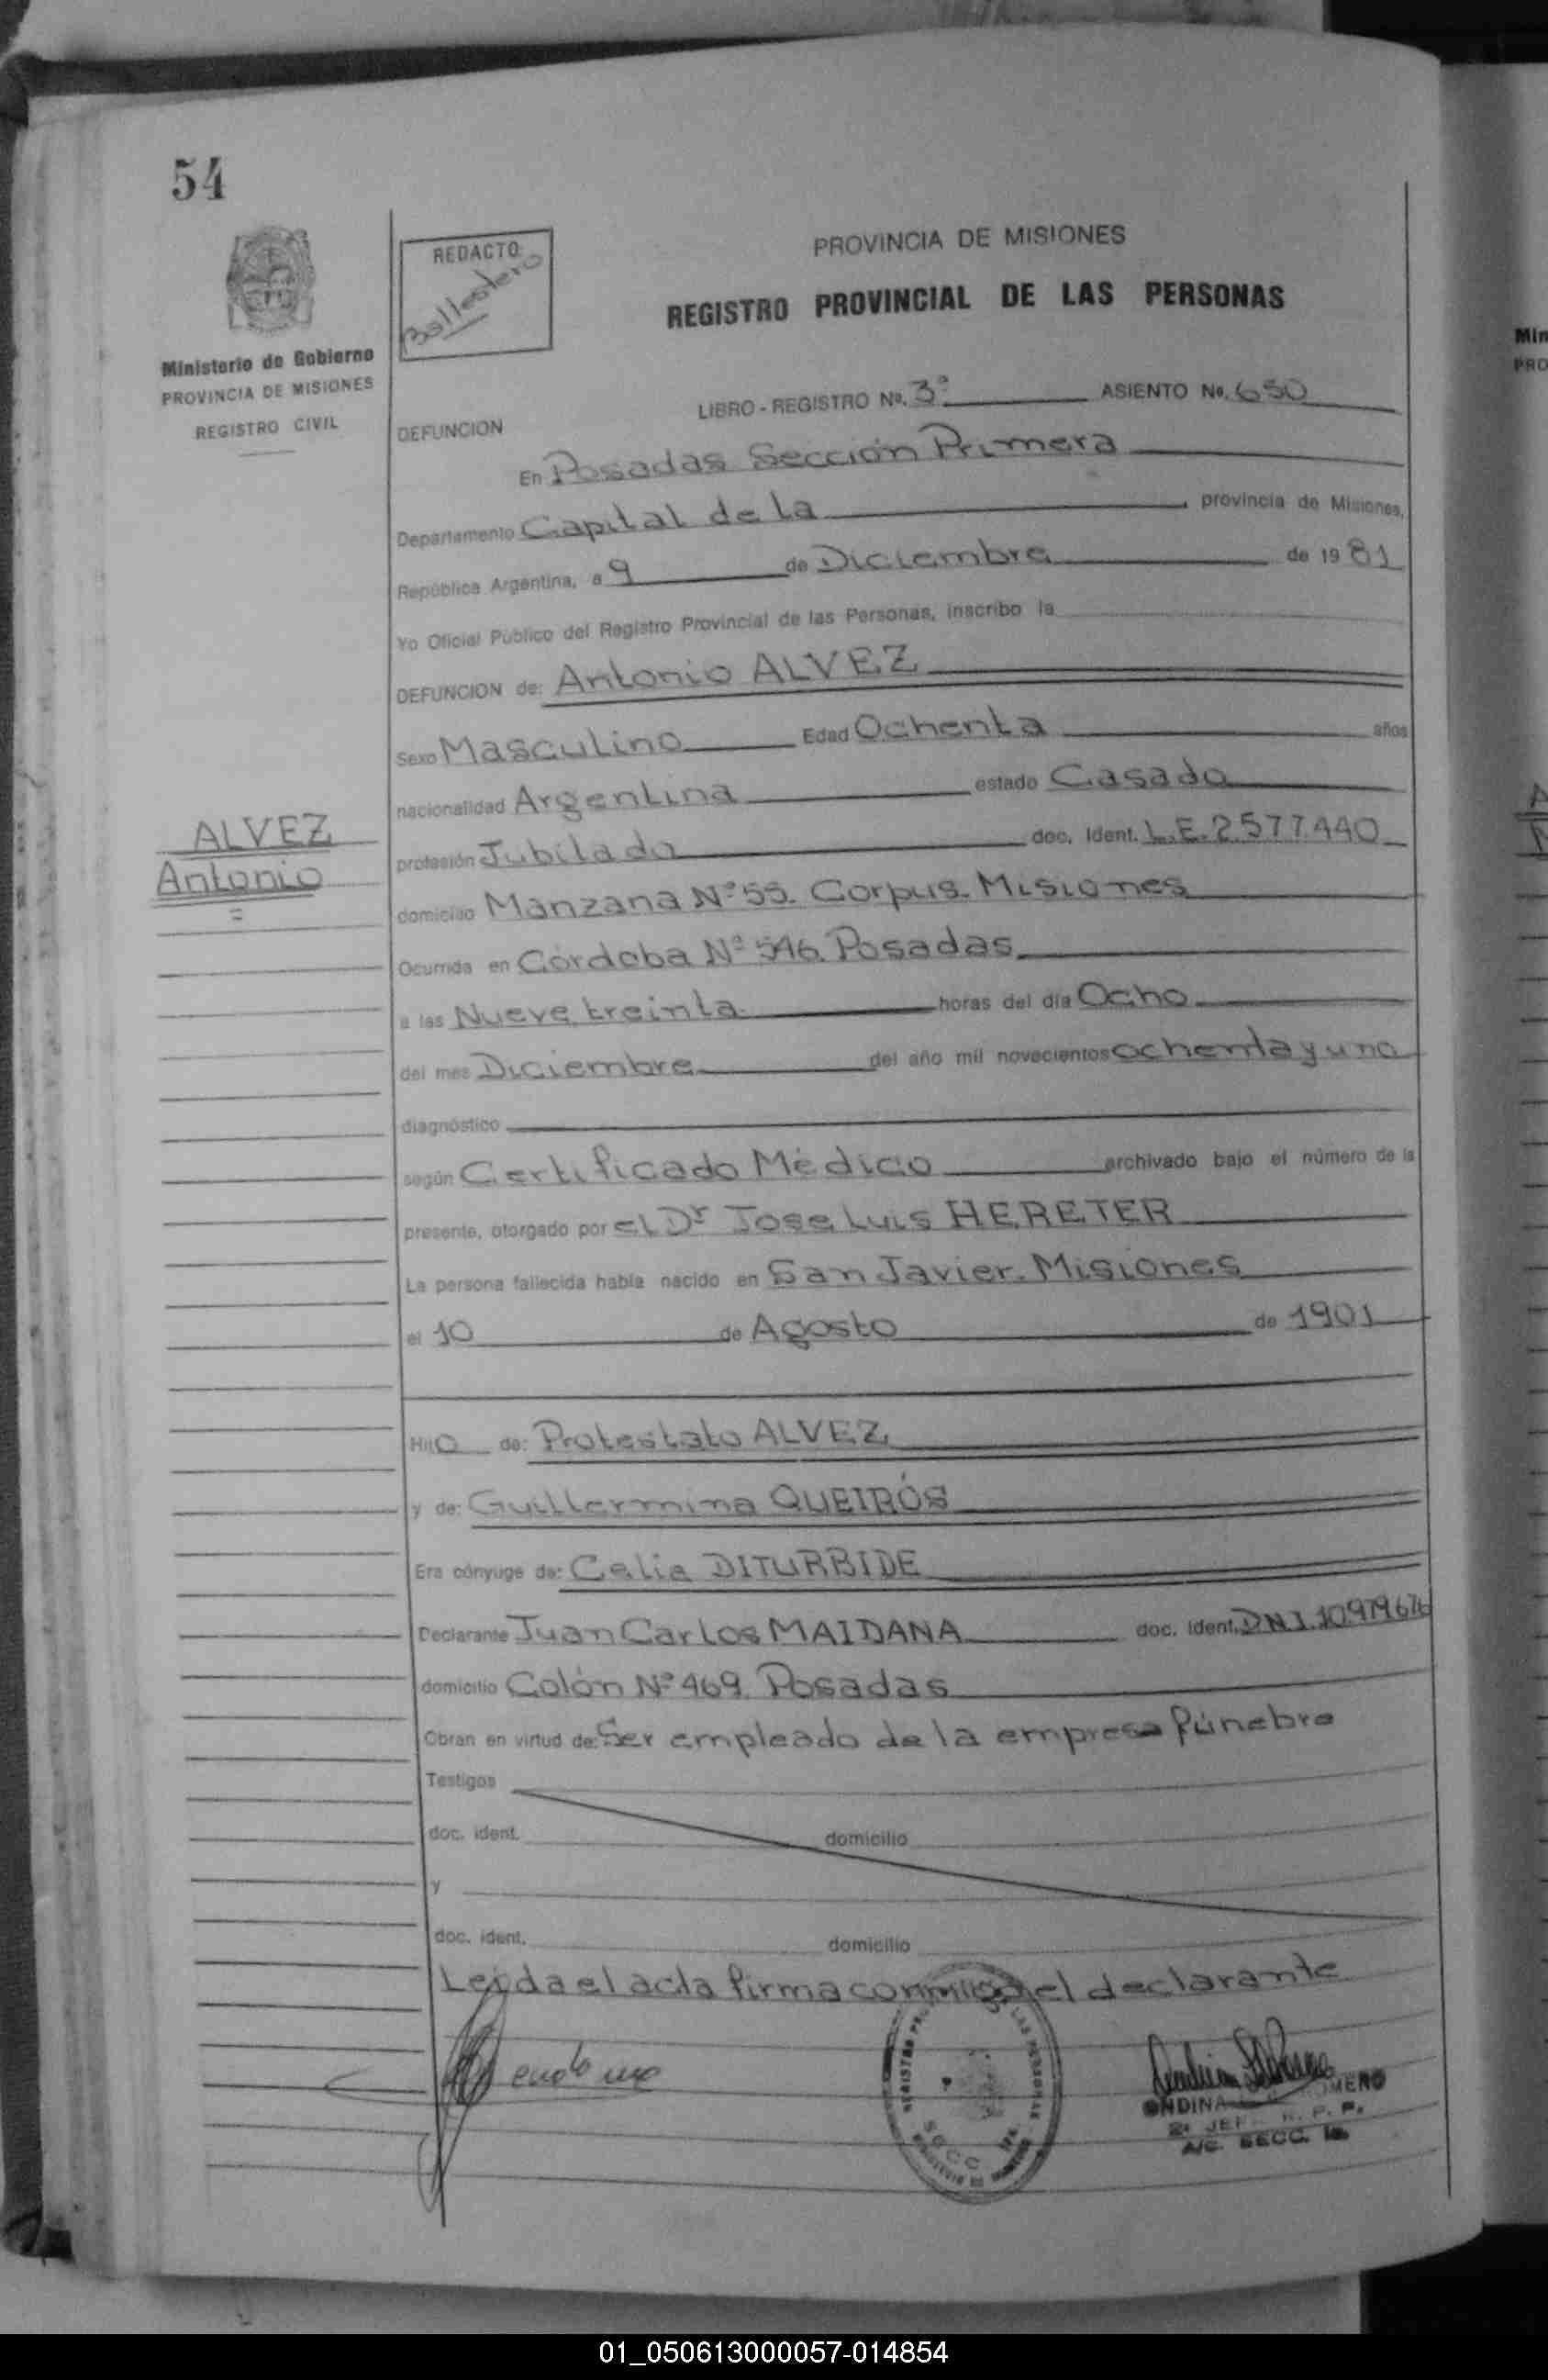 54
REDACTO
Ballestero
PROVINCIA DE MISIONES
REGISTRO PROVINCIAL DE LAS PERSONAS
Ministerio de Gobierno
PROVINCIA DE MISIONES
REGISTRO CIVIL
LIBRO - REGISTRO No. 3º ASIENTO No. 650
DEFUNCION
En Posadas Sección Primera
Departamento Capital de la provincia de Misiones,
República Argentina, a 9 de Diciembre de 1981
Yo Oficial Público del Registro Provincial de las Personas, inscribo la
DEFUNCION de: Antonio ALVEZ
Sexo Masculino Edad Ochenta años
nacionalidad Argentina estado Casado
ALVEZ
Antonio
profesión Jubilado doc. Ident. L.E. 2.577.440
domicilio Manzana Nº 55. Corpus. Misiones
Ocurrida en Córdoba Nº 546. Posadas
a las Nueve treinta horas del día Ocho
del mes Diciembre del año mil novecientos ochenta y uno
diagnóstico
según Certificado Médico archivado bajo el número de la
presente, otorgado por el Dr Jose Luis HERETER
La persona fallecida había nacido en San Javier. Misiones
el 10 de Agosto de 1901
Hijo de: Protestato ALVEZ
y de: Guillermina QUEIRÓS
Era cónyuge de: Celia DITURBIDE
Declarante Juan Carlos MAIDANA doc. Ident. DNI. 10.979.676
domicilio Colón Nº 469. Posadas
Obran en virtud de: Ser empleado de la empresa fúnebre
Testigos
doc. ident. domicilio
y
doc. ident. domicilio
Leída el acta firma conmigo el declarante
ONDINA
A/C. SECC. 1a
01_050613000057-014854